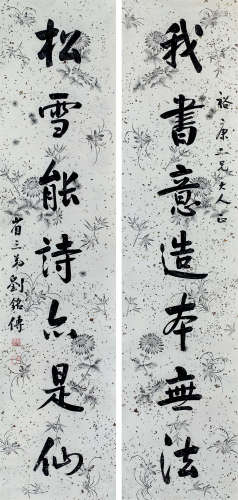 我書意造本無法
裕康二兄大人正
松雪能詩亦是仙
省三弟劉銘傳